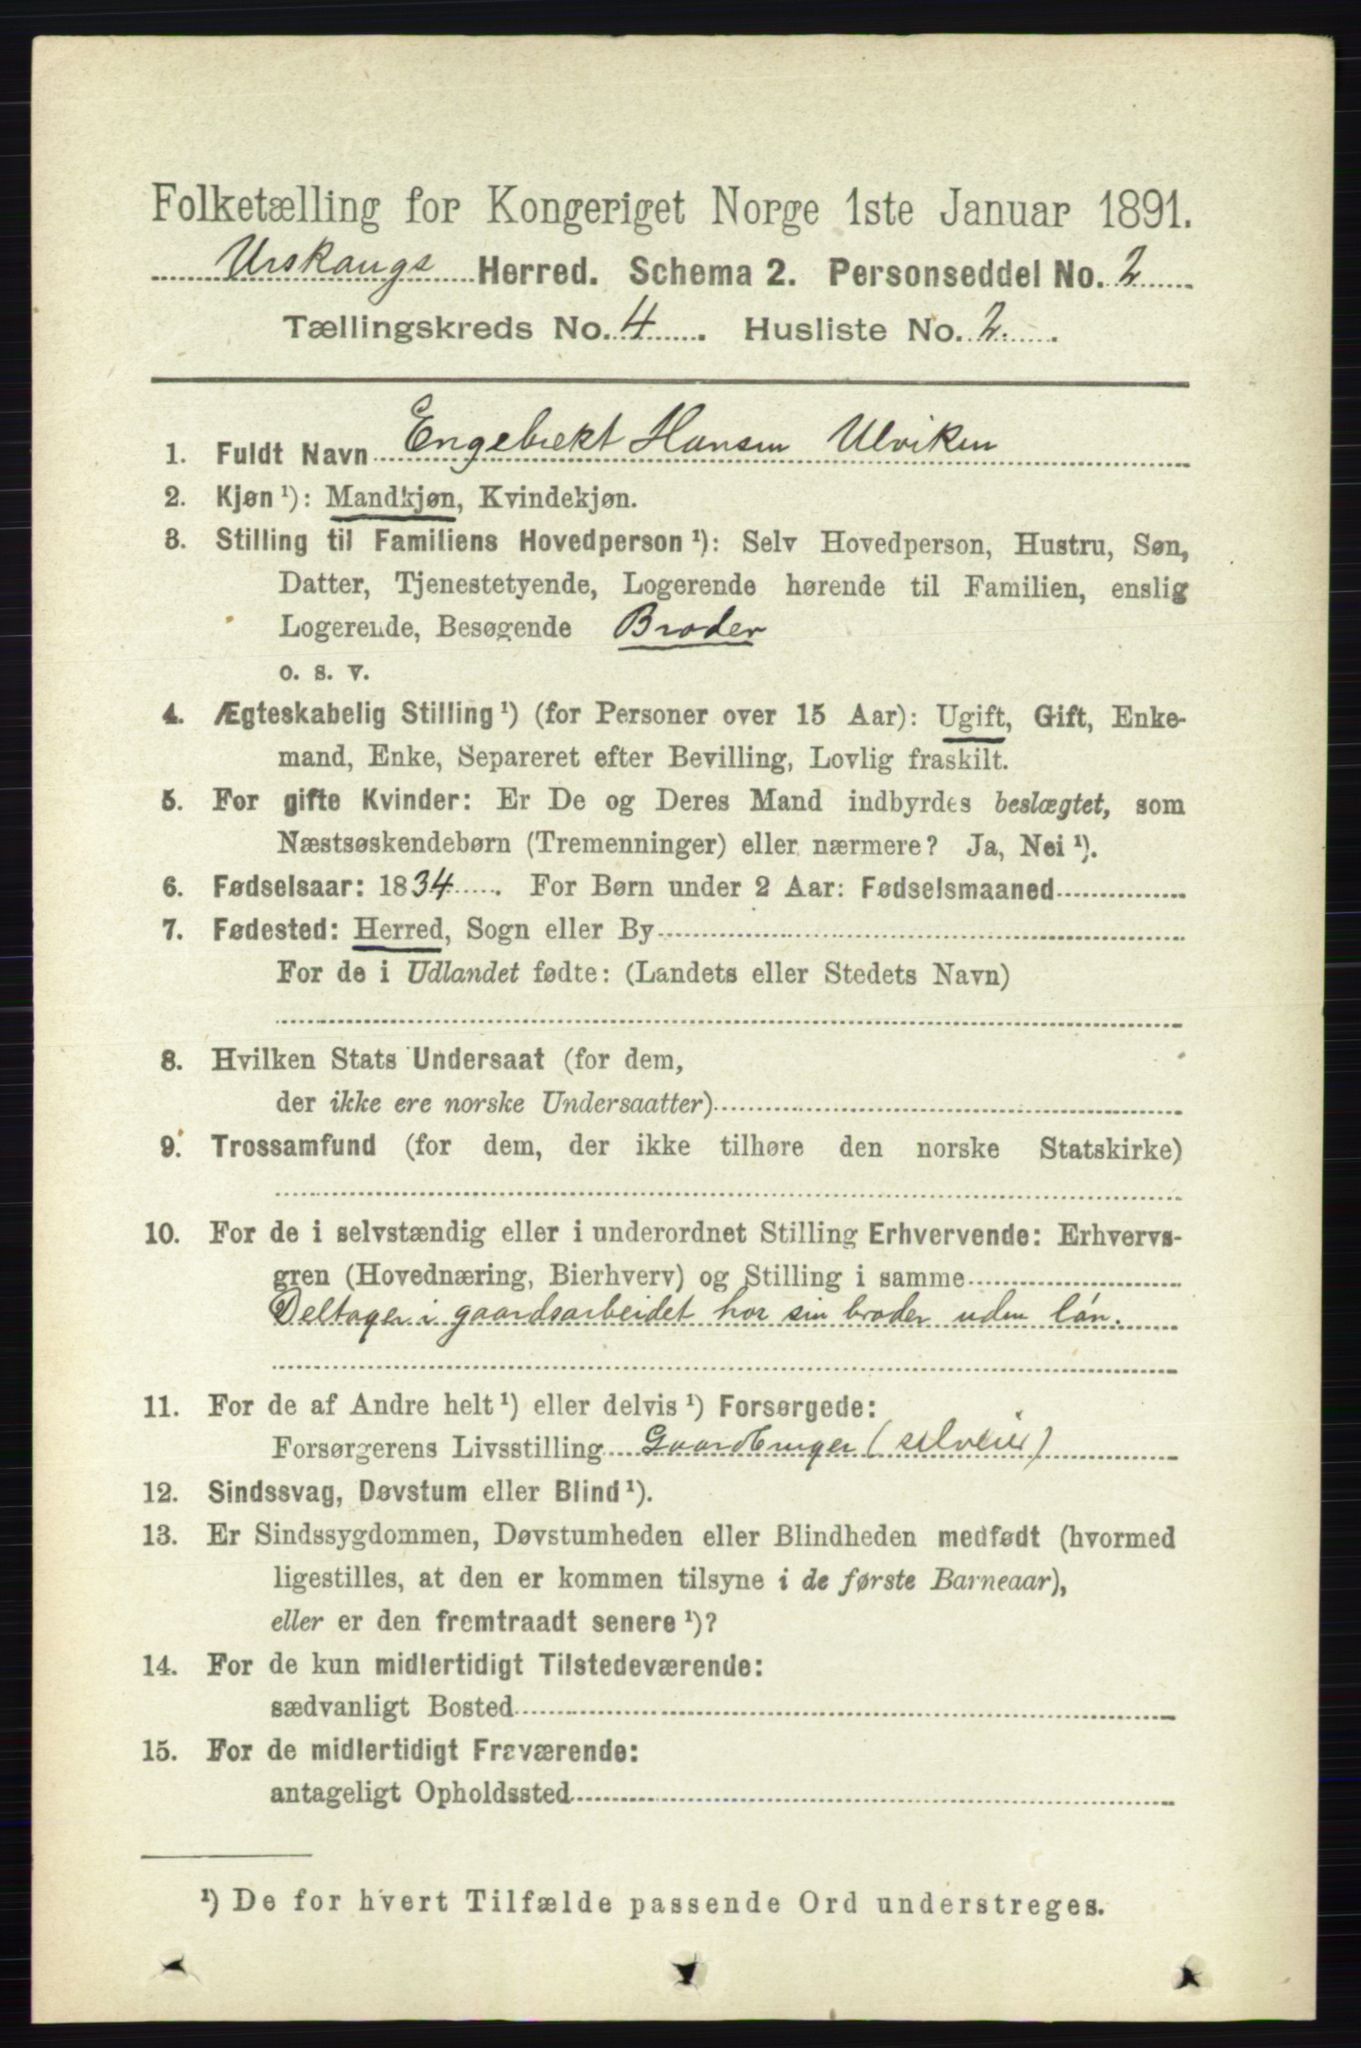 Folketælling for Kongeriget Norge 1ste Januar 1891.
Urskaugs Herred. Schema 2. Personseddel No. 2
Tællingskreds No. 4. Husliste No. 2.
1. Fuldt Navn Engebrekt Hansen Ulviken
2. Kjøn ¹): Mandkjøn, Kvindekjøn.
3. Stilling til Familiens Hovedperson ¹): Selv Hovedperson, Hustru, Søn,
Datter, Tjenestetyende, Logerende hørende til Familien, enslig
Logerende, Besøgende Broder
o. s. v.
4. Ægteskabelig Stilling ¹) (for Personer over 15 Aar): Ugift, Gift, Enke-
mand, Enke, Separeret efter Bevilling, Lovlig fraskilt.
5. For gifte Kvinder: Er De og Deres Mand indbyrdes beslægtet, som
Næstsøskendebørn (Tremenninger) eller nærmere? Ja, Nei ¹).
6. Fødselsaar: 1834. For Børn under 2 Aar: Fødselsmaaned
7. Fødested: Herred, Sogn eller By
For de i Udlandet fødte: (Landets eller Stedets Navn)
8. Hvilken Stats Undersaat (for dem,
der ikke ere norske Undersaatter)
9. Trossamfund (for dem, der ikke tilhøre den norske Statskirke)
10. For de i selvstændig eller i underordnet Stilling Erhvervende: Erhvervs-
gren (Hovednæring, Bierhverv) og Stilling i samme
Deltager i gaardsarbeidet hos sin broder uden løn.
11. For de af Andre helt ¹) eller delvis ¹) Forsørgede:
Forsørgerens Livsstilling Gaardbruger (selveier)
12. Sindssvag, Døvstum eller Blind ¹).
13. Er Sindssygdommen, Døvstumheden eller Blindheden medfødt (hvormed
ligestilles, at den er kommen tilsyne i de første Barneaar),
eller er den fremtraadt senere ¹)?
14. For de kun midlertidigt Tilstedeværende:
sædvanligt Bosted
15. For de midlertidigt Fraværende:
antageligt Opholdssted
¹) De for hvert Tilfælde passende Ord understreges.